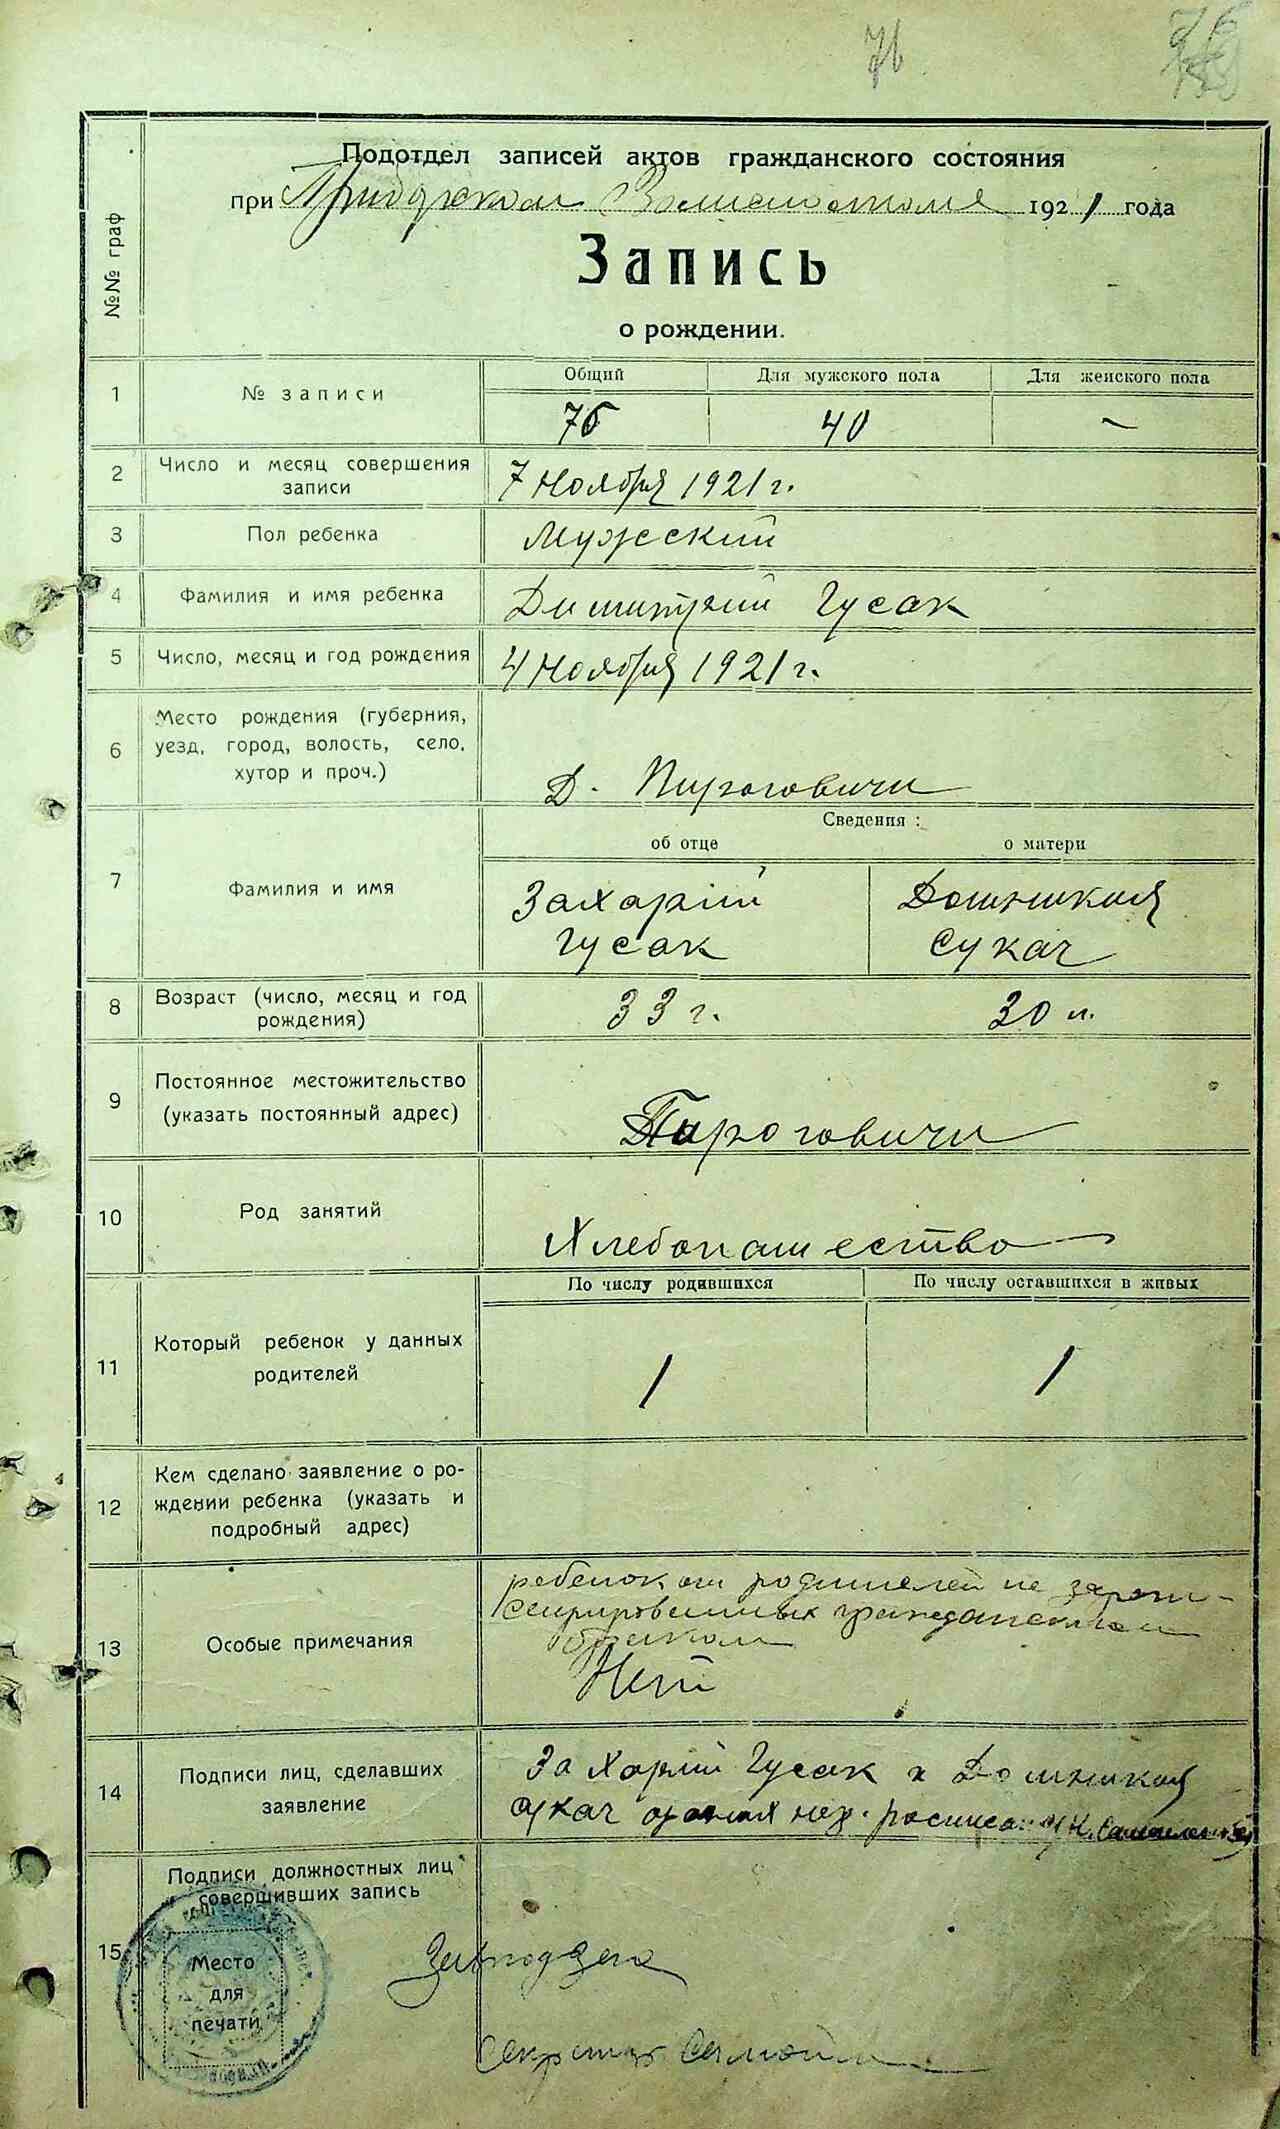 76
Подотдел записей актов гражданского состояния
при Приборском 1921 года
Запись
о рождении.
№№ граф
1 № записи
Общий Для мужского пола Для женского пола
76 40 —
2 Число и месяц совершения
записи
7 Ноября 1921 г.
3 Пол ребенка Мужеский
4 Фамилия и имя ребенка Димитрий Гусак
5 Число, месяц и год рождения 4 Ноября 1921 г.
6 Место рождения (губерния,
уезд, город, волость, село,
хутор и проч.)
Д. Пироговичи
Сведения:
об отце о матери
7 Фамилия и имя
Захарий Домникия
Гусак Сукач
8 Возраст (число, месяц и год
рождения)
33 г. 30 л.
9 Постоянное местожительство
(указать постоянный адрес)
Пироговичи
10 Род занятий
Хлебопашество
По числу родившихся По числу оставшихся в живых
11 Который ребенок у данных
родителей
1 1
12 Кем сделано заявление о ро-
ждении ребенка (указать и
подробный адрес)
13 Особые примечания
ребенок от родителей не зареги-
стрированных гражданским
браком
Нет
14 Подписи лиц, сделавших
заявление
Захарий Гусак и Домникия
Сукач
15 Подписи должностных лиц
совершивших запись
Место
для
печати
Завподзага
Секретарь